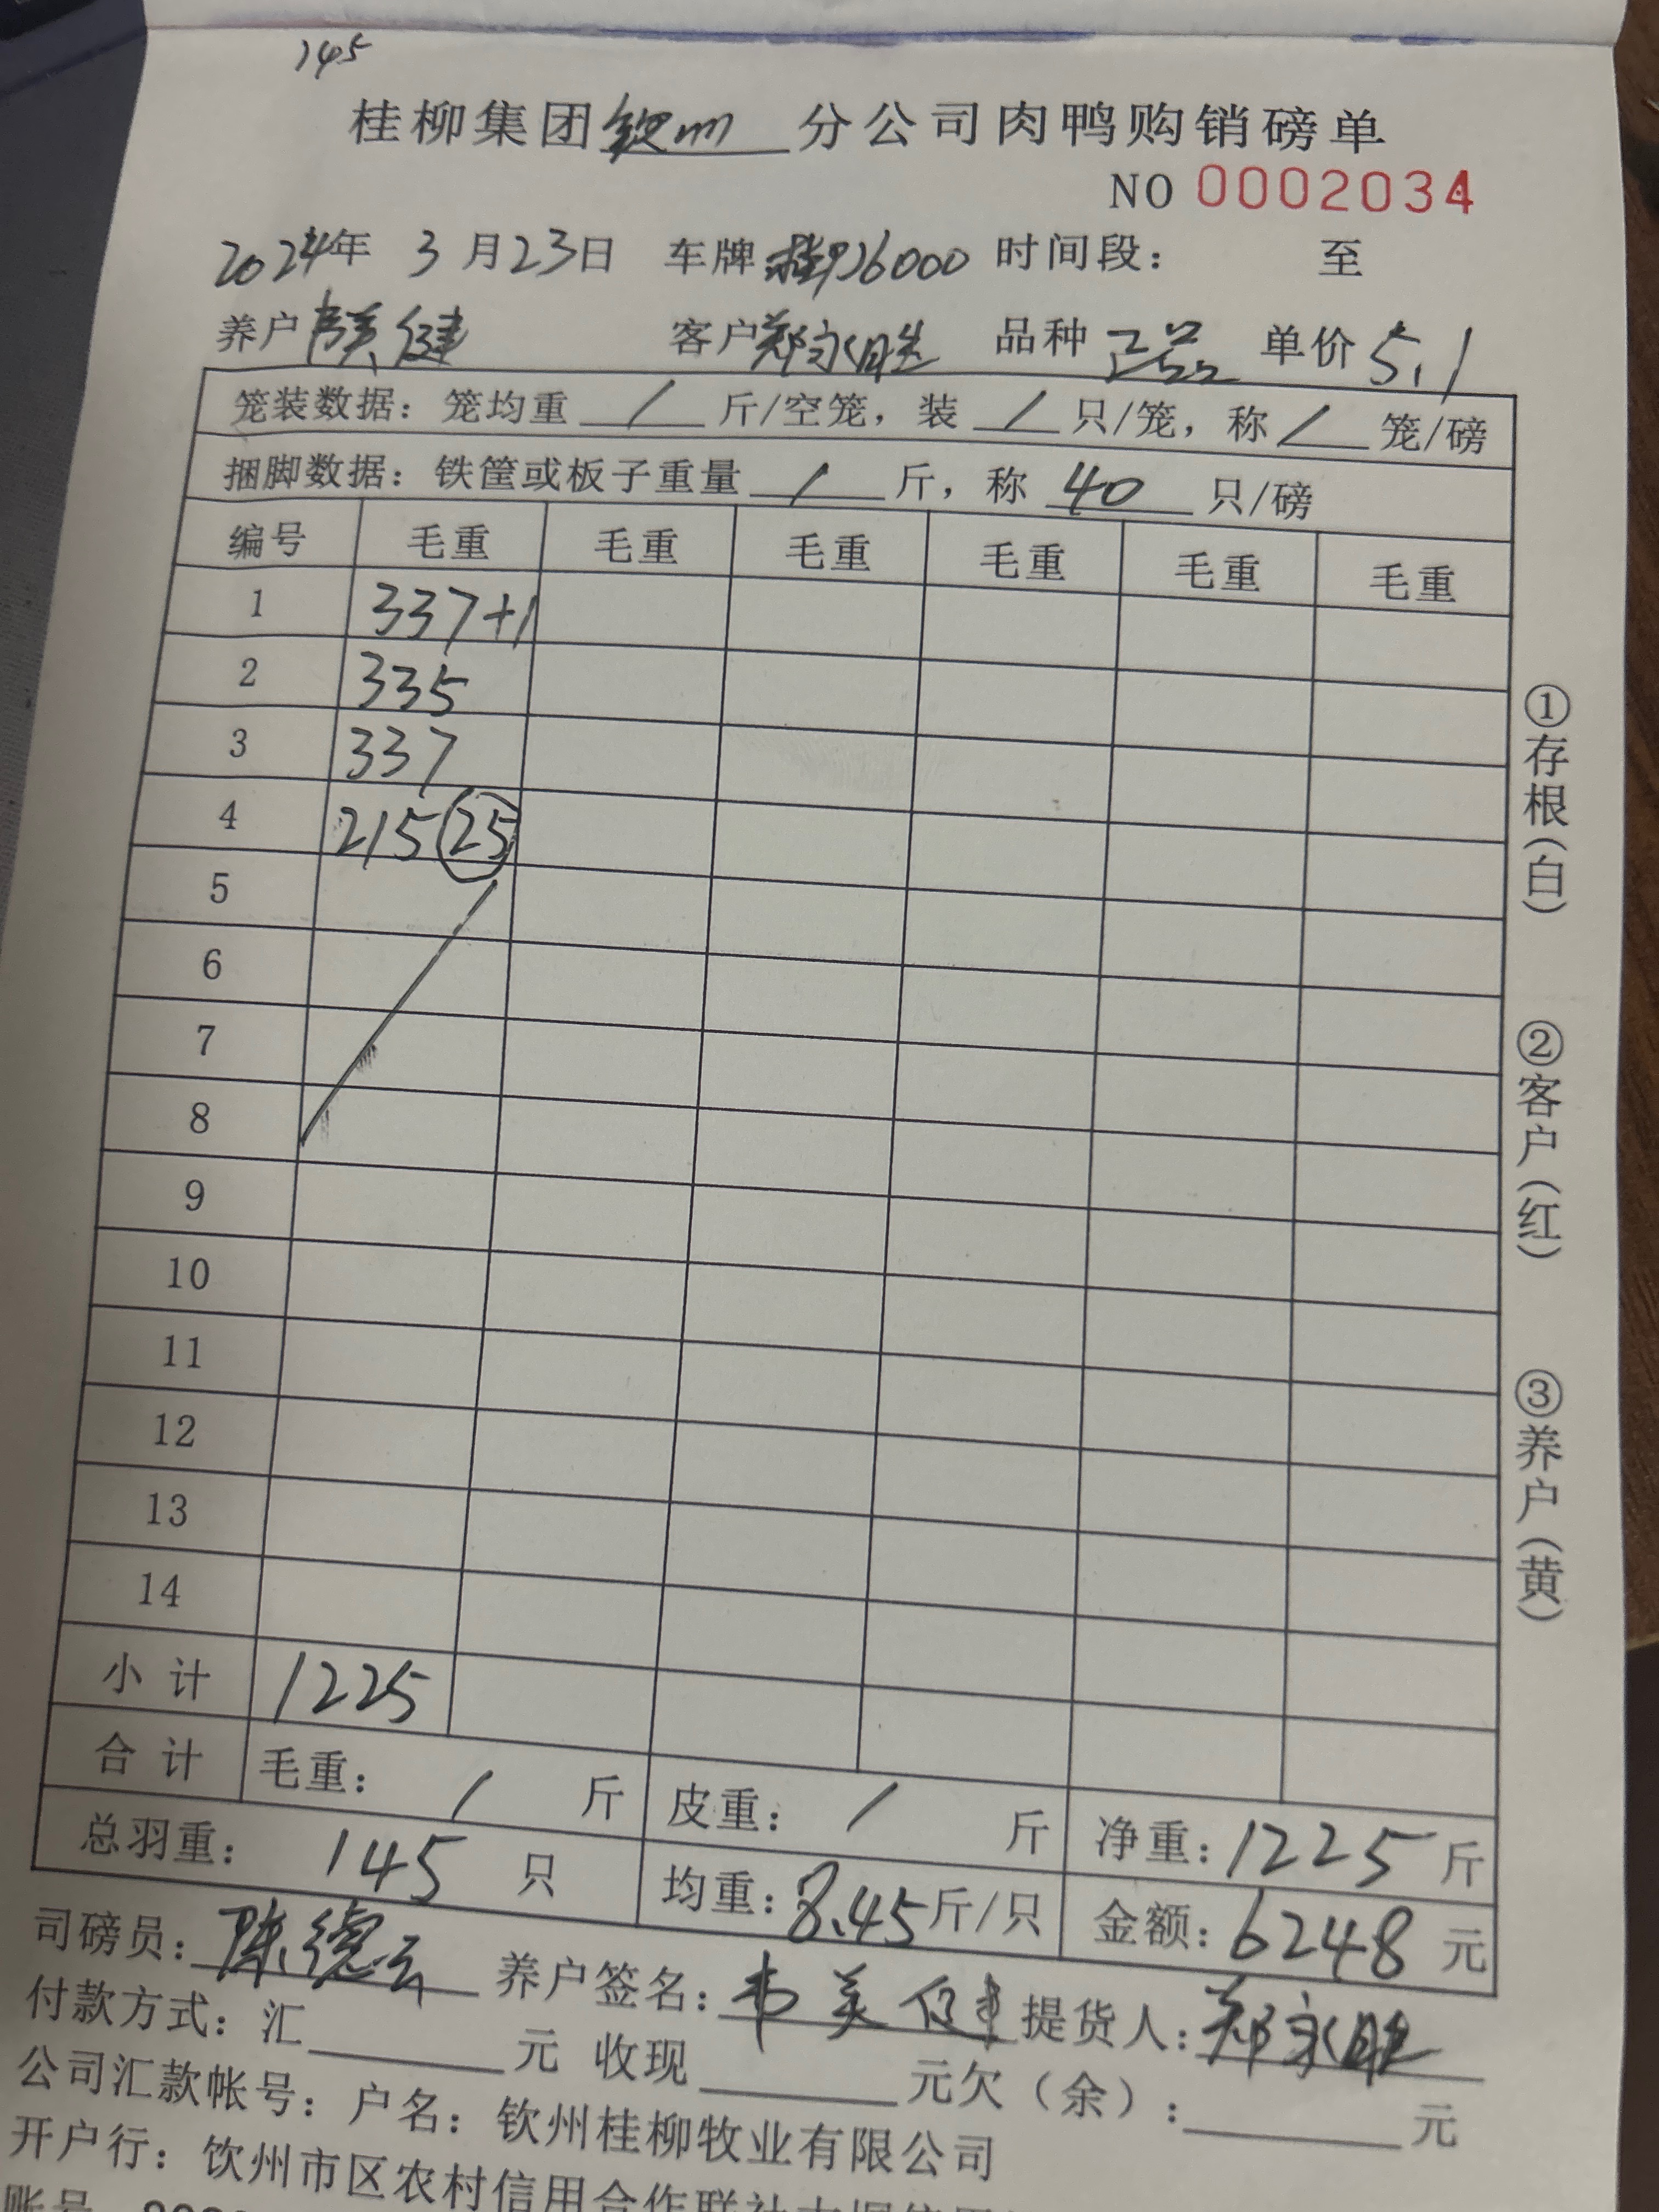 145
桂柳集团钦州分公司肉鸭购销磅单
NO 0002034
2024年 3月23日 车牌 桂P26000 时间段： 至
养户 韦美健 客户 郑永胜 品种 正品 单价 5.1
笼装数据：笼均重 / 斤/空笼，装 / 只/笼，称 / 笼/磅
捆脚数据：铁筐或板子重量 / 斤，称 40 只/磅
编号 毛重 毛重 毛重 毛重 毛重 毛重
1 337+1
2 335
3 337
4 215 25
5
6
7
8
9
10
11
12
13
14
小计 1225
合计 毛重： / 斤 皮重： / 斤 净重：1225斤
总羽重： 145 只 均重：8.45斤/只 金额：6248元
司磅员：陈德云 养户签名：韦美健 提货人：郑永胜
付款方式：汇 元 收现 元欠（余）： 元
公司汇款帐号：户名：钦州桂柳牧业有限公司
开户行：饮州市区农村信用合作联社大
账号
①存根（白）
②客户（红）
③养户（黄）